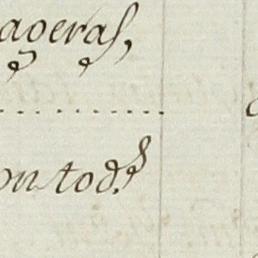 ageras,
on tod.s